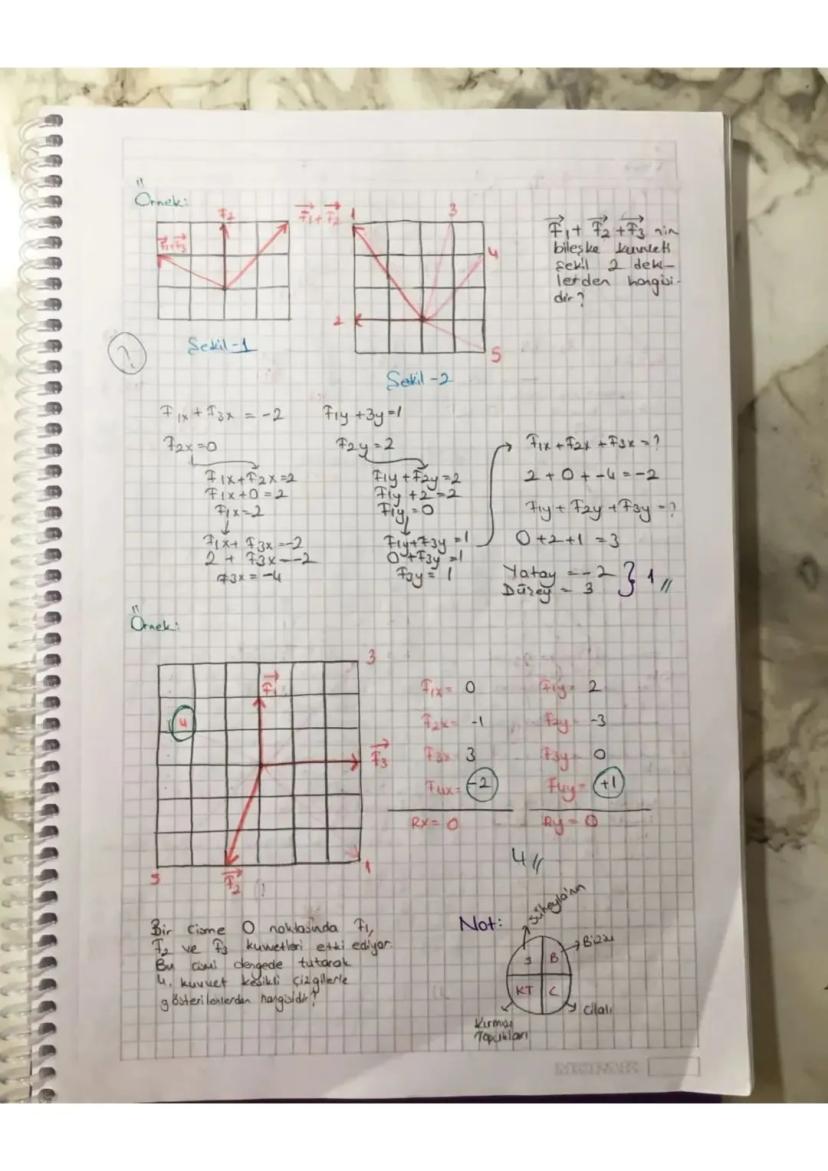 Örnek:
F₂
F₁+F₃
F₁+F₂
1
3
4
2
5
Şekil-1
Şekil-2
F₁ + F₂ + F₃ nin
bileşke kuvveti
şekil 2 deki-
lerden hangisi-
dir?
?
F₁x + F₃x = -2
F₂x=0
F₁x+F₂x=2
F₁x+0=2
F₁x=2
F₁x+F₃x=-2
2 + F₃x=-2
F₃x=-4
F₁y+3y=1
F₂y=2
F₁y+F₂y=2
F₁y+2=2
F₁y=0
F₁y+F₃y=1
0+F₃y=1
F₃y=1
F₁x+F₂x+F₃x=?
2+0+-4=-2
F₁y+F₂y+F₃y=?
0+2+1=3
Yatay=-2
Düşey=3
} 1 //
Örnek:
3
F₁
4
F₃
5
F₂
1
F₁x= 0
F₂x= -1
F₃x 3
F₄x= -2
Rx= 0
F₁y= 2
F₂y= -3
F₃y 0
F₄y= +1
Ry= 0
4 //
Bir cisme O noktasında F₁,
F₂ ve F₃ kuvvetleri etki ediyor.
Bu cismi dengede tutacak
4. kuvvet kesikli çizgilerle
gösterilenlerden hangisidir?
Not:
Süheyla'nın
Bizsu
S B
KT C
Cilalı
Kırmızı
Topukları